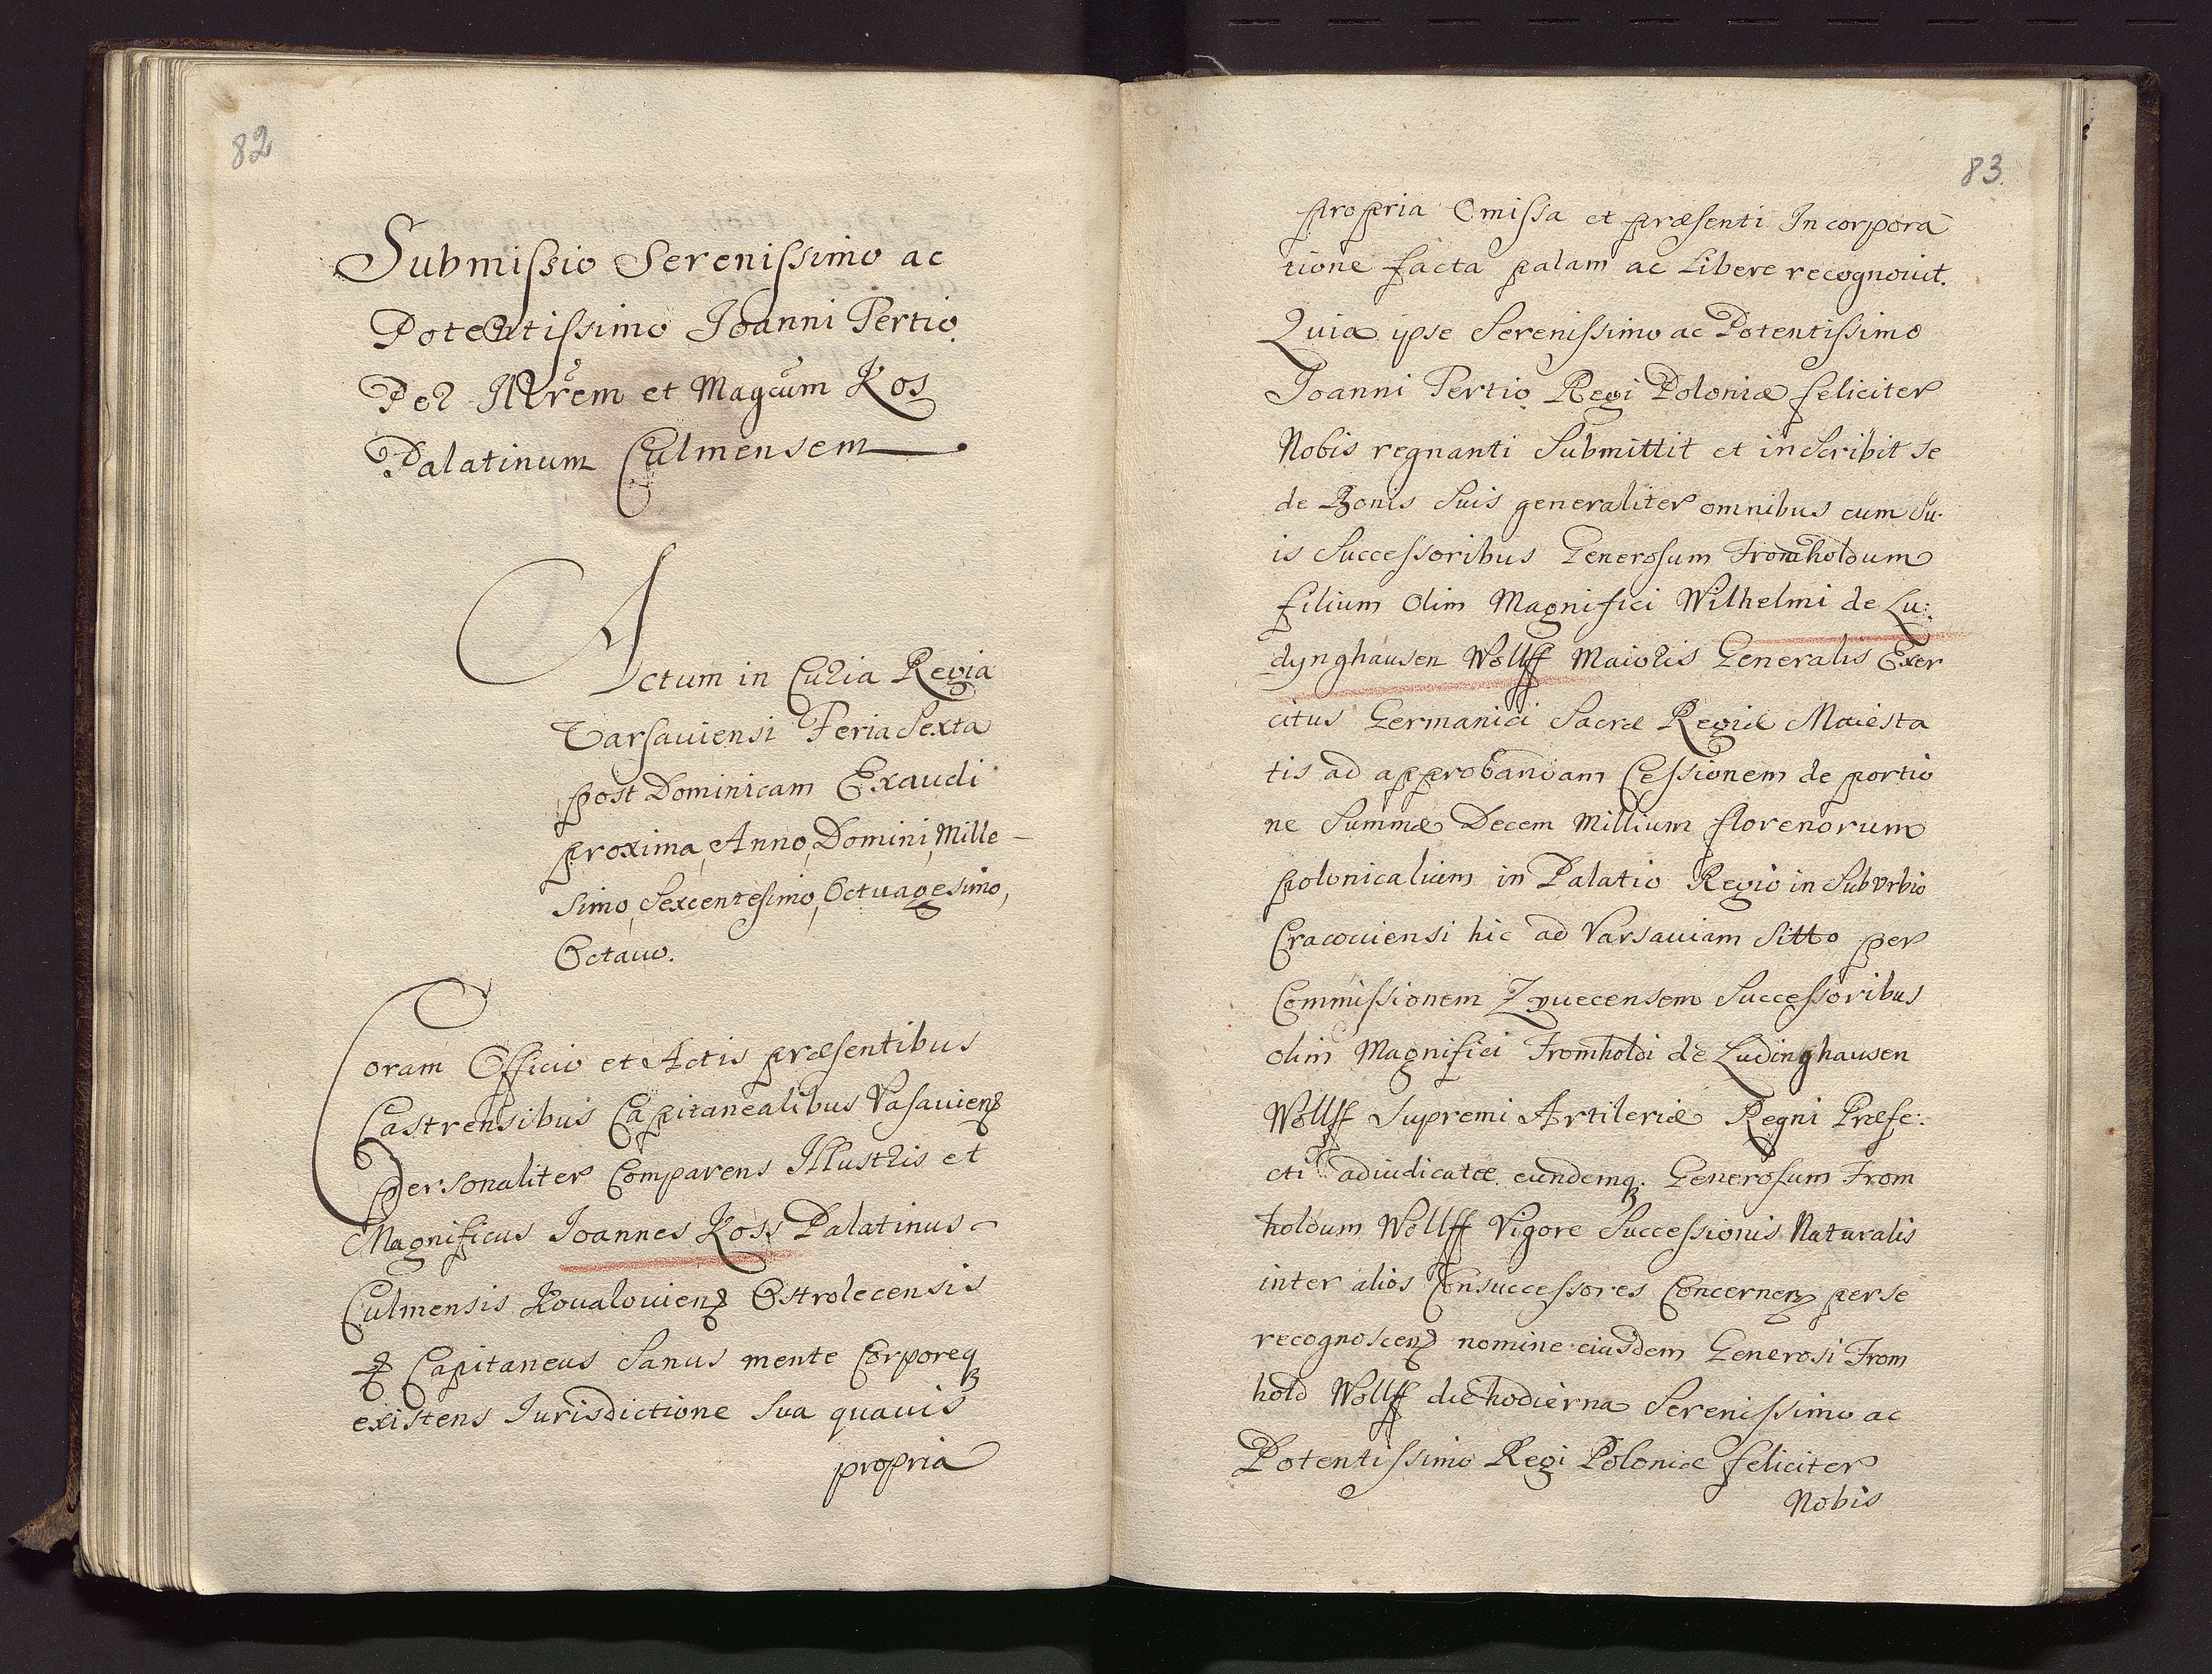 82
Submissio Serenissimo ac
Potentissimo Joanni Tertio
Per Illrem et Magcum Kos
Palatinum Culmensem
Actum in Curia Regia
Varsauiensi Feria Sexta
post Dominicam Exaudi
proxima, Anno, Domini, Mille-
simo, Sexcentesimo, Octuagesimo,
Octauo.
Coram Officio et Actis præsentibus
Castrensibus Capitanealibus Vasauien
personaliter Comparens Illustris et
Magnificus Joannes Koss Palatinus
Culmensis Koualouien Ostrolecensis
Capitaneus Sanus mente Corporeq
existens Jurisdictione sua quauis
propria
83.
propria Omissa et præsenti Incorpora
tione facta palam ac Libere recognouit.
Quia ipse Serenissimo ac Potentissimo
Joanni Tertio Regi Poloniæ feliciter
Nobis regnanti Submittit et inscribit se
de Bonis Suis generaliter omnibus cum Su-
is Successoribus Generosum Fromholdum
filium Olim Magnifici Wilhelmi de Lu:
dynghausen Wollff Maioris Generalis Exer
citus Germanici Sacræ Regiæ Maiesta
tis ad approbandam Cessionem de portio
ne Summæ Decem Millium florenorum
polonicalium in Palatio Regio in Suburbio
Cracouiensi hic ad Varsauiam Sitto per
Commissionem Zyuecensem Successoribus
olim Magnifici Fromholdi de Ludinghausen
Wollff Supremi Artileriæ Regni Præfe:
cti adiudicatæ eundemq. Generosum From
holdum Wollff Vigore Successionis Naturalis
inter alios Consuccessores Concernen per se
recognoscen nomine eiusdem Generosi From
hold Wollff die hodierna Serenissimo ac
Potentissimo Regi Poloniæ feliciter
Nobis